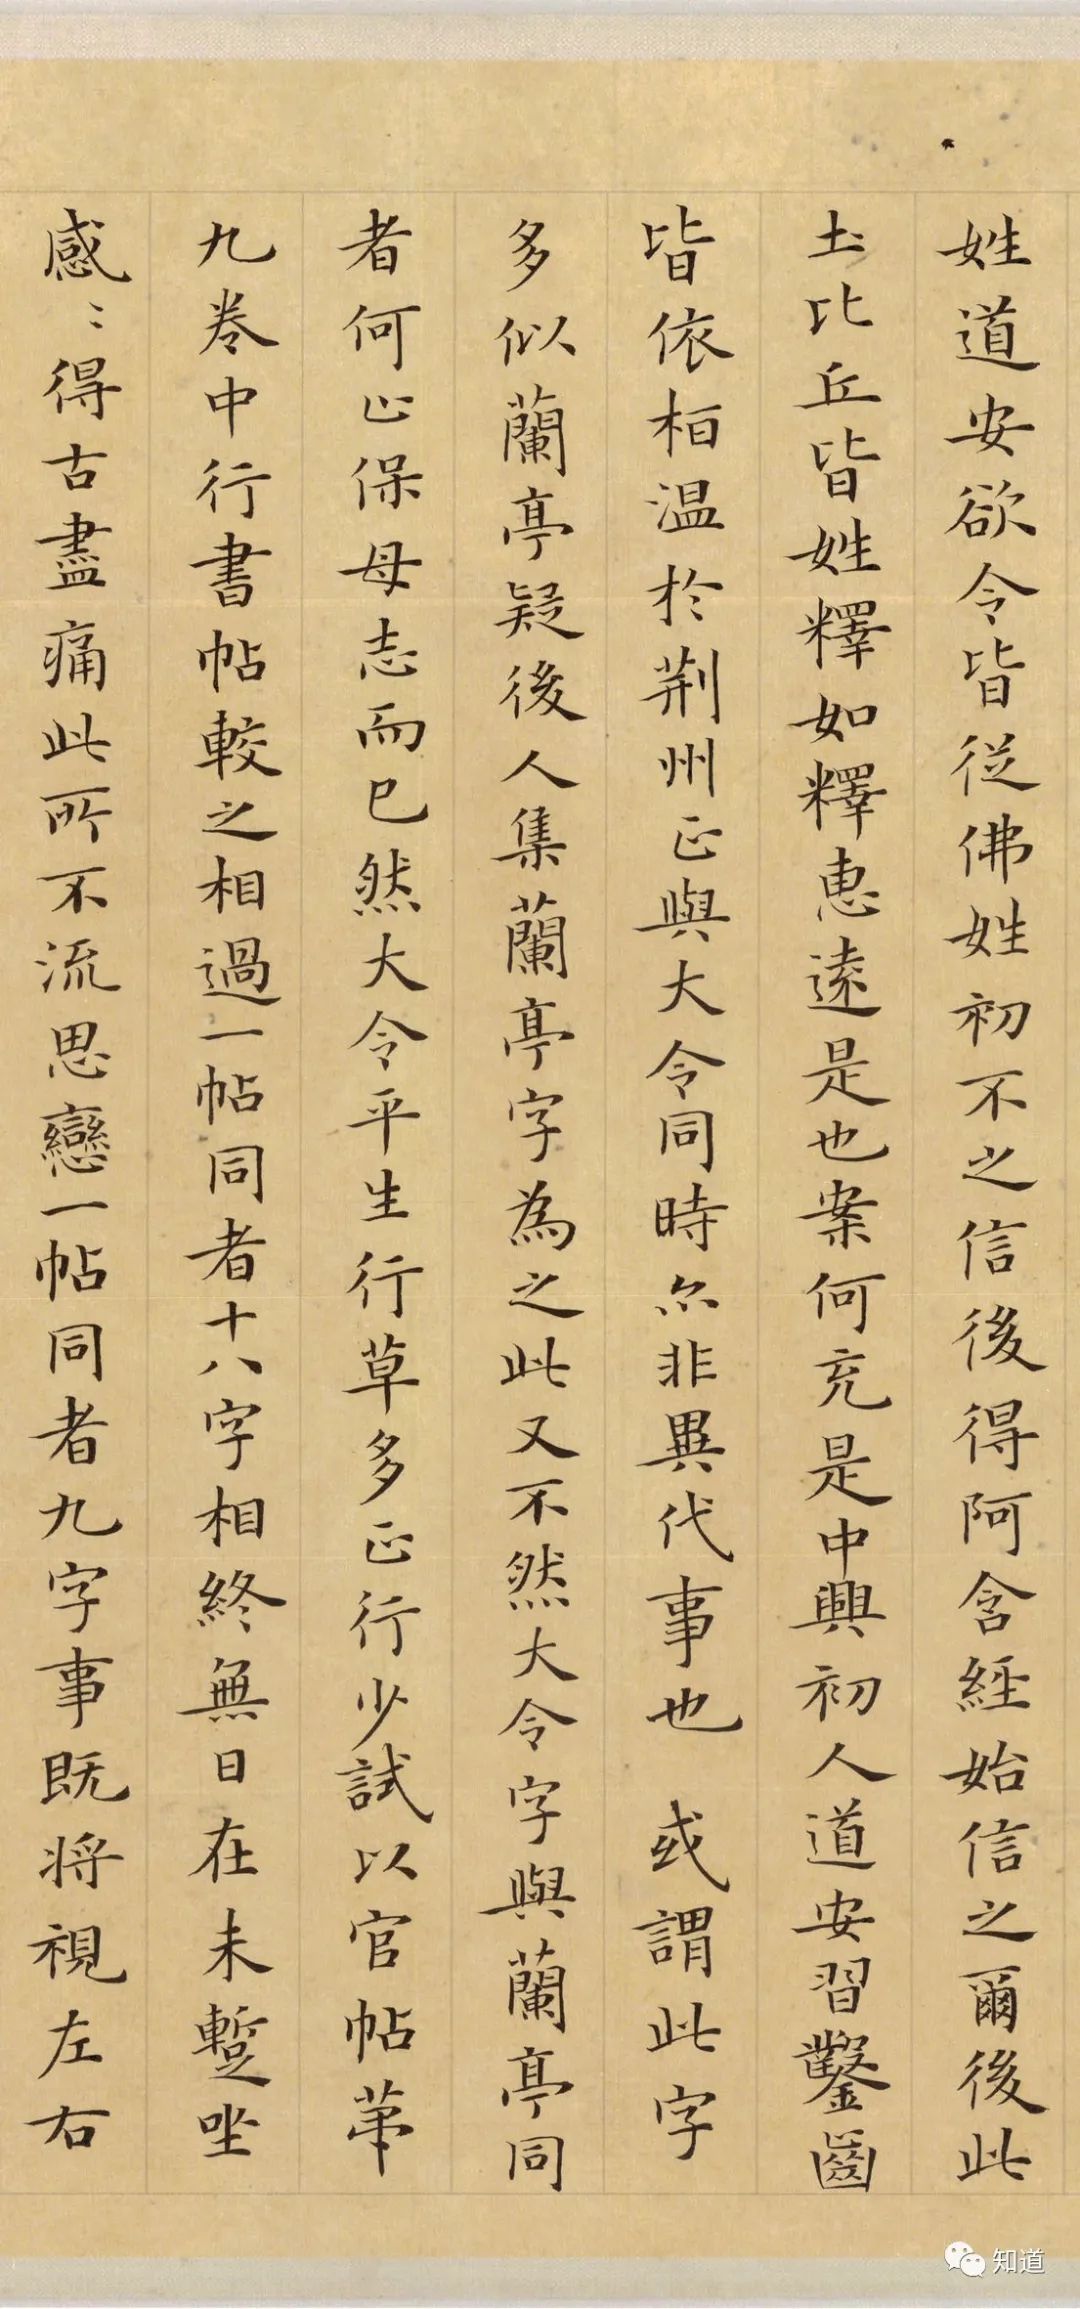 姓道安欲令皆從佛姓初不之信後得阿含經始信之爾後此
土比丘皆姓釋如釋惠遠是也案何充是中興初人道安習鑿齒
皆依桓溫於荆州正與大令同時尒非異代事也 或謂此字
多似蘭亭疑後人集蘭亭字為之此又不然大令字與蘭亭同
者何止保母志而已然大令平生行草多正行少試以官帖苐
九卷中行書帖較之相過一帖同者十八字相終無日在未蹔坐
感〻得古盡痛此所不流思戀一帖同者九字事既將視左右
知道